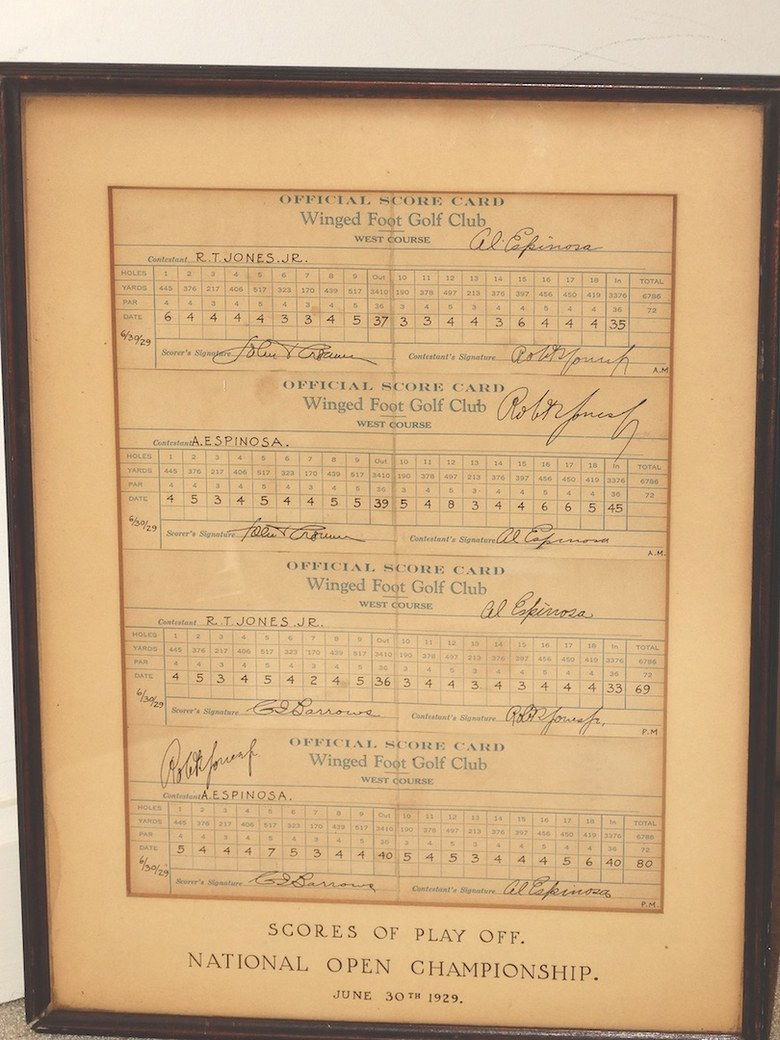 OFFICIAL SCORE CARD
Winged Foot Golf Club
WEST COURSE
Al Espinosa
Contestant R.T. JONES. JR.
HOLES 1 2 3 4 5 6 7 8 9 Out 10 11 12 13 14 15 16 17 18 In TOTAL
YARDS 445 376 217 406 517 323 170 439 517 3410 190 378 497 213 376 397 456 450 419 3376 6786
PAR 4 4 3 4 5 4 3 4 5 36 3 4 5 3 4 4 4 4 4 36 72
DATE 6 4 4 4 4 3 3 4 5 37 3 3 4 4 3 6 4 4 4 35
6/30/29
Scorer's Signature Contestant's Signature Robt T Jones Jr
A.M
OFFICIAL SCORE CARD
Winged Foot Golf Club
WEST COURSE
Robt T Jones Jr
Contestant A. ESPINOSA.
HOLES 1 2 3 4 5 6 7 8 9 Out 10 11 12 13 14 15 16 17 18 In TOTAL
YARDS 445 376 217 406 517 323 170 439 517 3410 190 378 497 213 376 397 456 450 419 3376 6786
PAR 4 4 3 4 5 4 3 4 5 36 3 4 5 3 4 4 4 4 4 36 72
DATE 4 5 3 4 5 4 4 5 5 39 5 4 8 3 4 4 6 6 5 45
6/30/29
Scorer's Signature Contestant's Signature Al Espinosa
A.M.
OFFICIAL SCORE CARD
Winged Foot Golf Club
WEST COURSE
Al Espinosa
Contestant R.T. JONES. JR.
HOLES 1 2 3 4 5 6 7 8 9 Out 10 11 12 13 14 15 16 17 18 In TOTAL
YARDS 445 376 217 406 517 323 170 439 517 3410 190 378 497 213 376 397 456 450 419 3376 6786
PAR 4 4 3 4 5 4 3 4 5 36 3 4 5 3 4 4 4 4 4 36 72
DATE 4 5 3 4 5 4 2 4 5 36 3 4 4 3 4 3 4 4 4 33 69
6/30/29
Scorer's Signature C G Barrows Contestant's Signature Robt T Jones Jr.
P.M
OFFICIAL SCORE CARD
Winged Foot Golf Club
WEST COURSE
Robt T Jones Jr
Contestant A. ESPINOSA.
HOLES 1 2 3 4 5 6 7 8 9 Out 10 11 12 13 14 15 16 17 18 In TOTAL
YARDS 445 376 217 406 517 323 170 439 517 3410 190 378 497 213 376 397 456 450 419 3376 6786
PAR 4 4 3 4 5 4 3 4 5 36 3 4 5 3 4 4 4 4 4 36 72
DATE 5 4 4 4 7 5 3 4 4 40 5 4 5 3 4 4 4 5 6 40 80
6/30/29
Scorer's Signature C G Barrows Contestant's Signature Al Espinosa
P.M.
SCORES OF PLAY OFF.
NATIONAL OPEN CHAMPIONSHIP.
JUNE 30TH 1929.